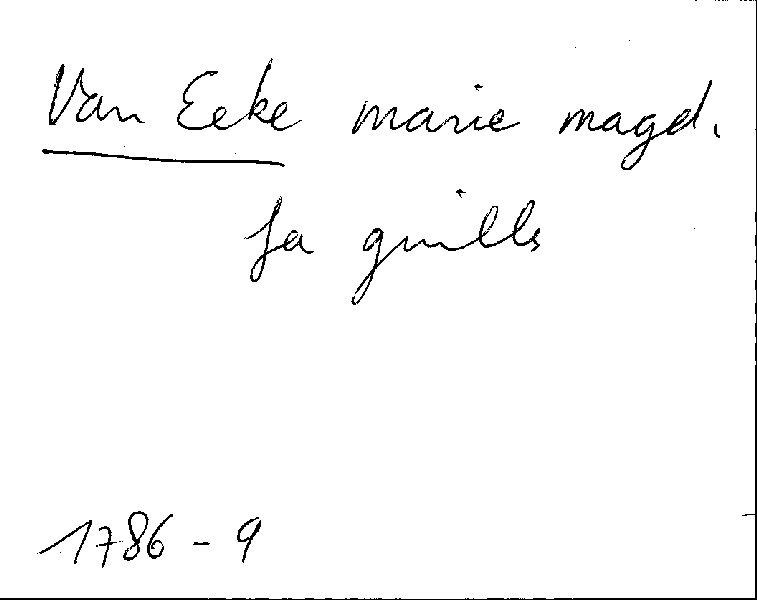 Van Eeke marie magd.
fa guills
1786 - 9